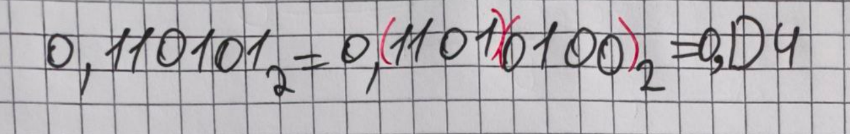 0,110101₂=0,(1101)(0100)₂=0,D4